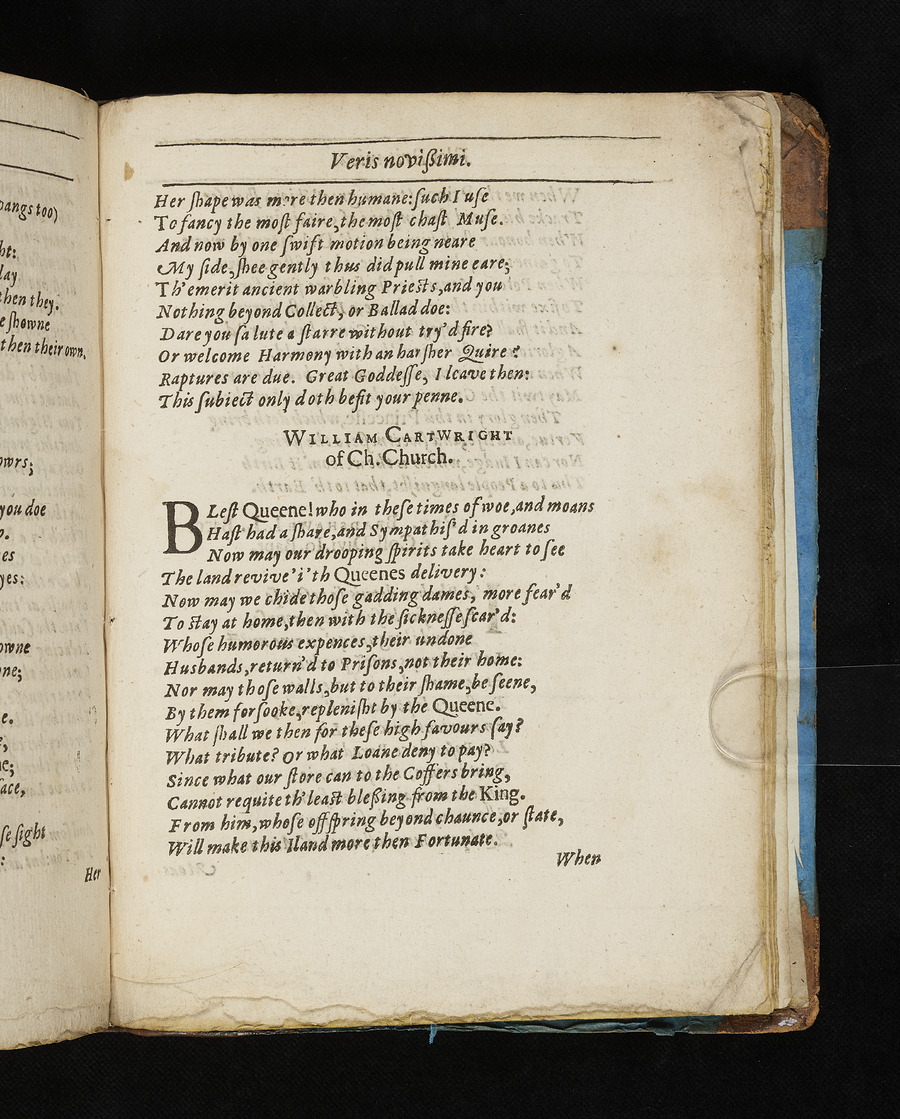 pangs too)
ht:
lay
then they.
e showne
then their own.
owrs;
you doe
es
yes:
owne
one;
e.
e;
face,
se sight
:
Her
Veris novißimi.
Her ſhape was more then humane: ſuch I uſe
To fancy the moſt faire, the moſt chaſt Muſe.
And now by one ſwift motion being neare
My ſide, ſhee gently thus did pull mine eare;
Th'emerit ancient warbling Prieſts, and you
Nothing beyond Collect, or Ballad doe:
Dare you ſalute a ſtarre without try'd fire?
Or welcome Harmony with an harſher Quire?
Raptures are due. Great Goddeſſe, I leave then:
This ſubiect only doth befit your penne.
WILLIAM CARTWRIGHT
of Ch. Church.
BLeſt Queene! who in theſe times of woe, and moans
Haſt had a ſhare, and Sympathiſ'd in groanes
Now may our drooping ſpirits take heart to ſee
The land revive 'i'th Queenes delivery:
Now may we chide thoſe gadding dames, more fear'd
To ſtay at home, then with the ſickneſſe ſcar'd:
Whoſe humorous expences, their undone
Husbands, return'd to Priſons, not their home:
Nor may thoſe walls, but to their ſhame, be ſeene,
By them forſooke, repleniſht by the Queene.
What ſhall we then for theſe high favours ſay?
What tribute? or what Loane deny to pay?
Since what our ſtore can to the Coffers bring,
Cannot requite th'leaſt bleßing from the King.
From him, whoſe offſpring beyond chaunce, or ſtate,
Will make this Iland more then Fortunate.
When